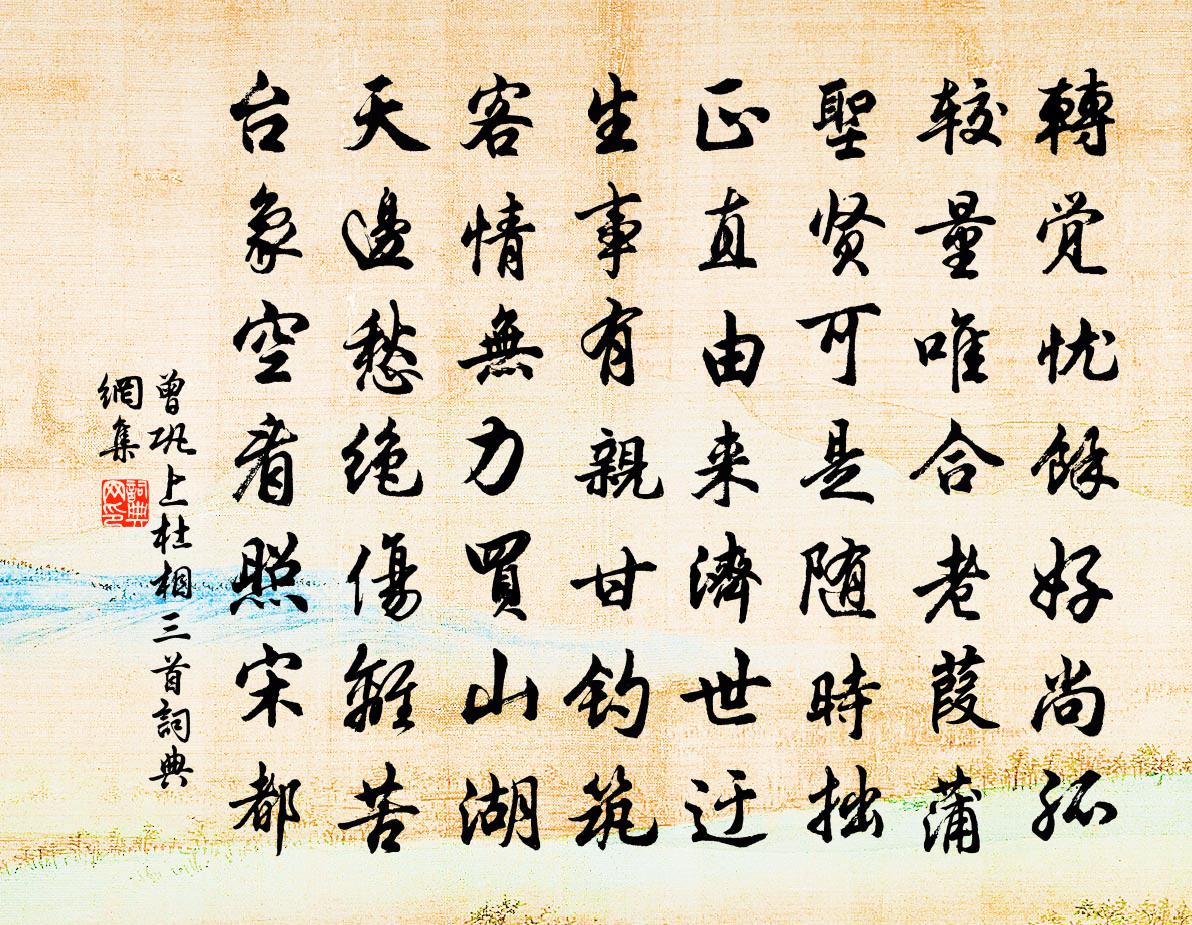 轉觉忧餘好尚孤
较量唯合老葭蒲
聖贤可是随時拙
正直由来濟世迂
生事有親甘钓筑
客情無力買山湖
天邊愁绝傷離苦
台象空看照宋都
曾巩上杜相三首詞典
網集
詞典
网印